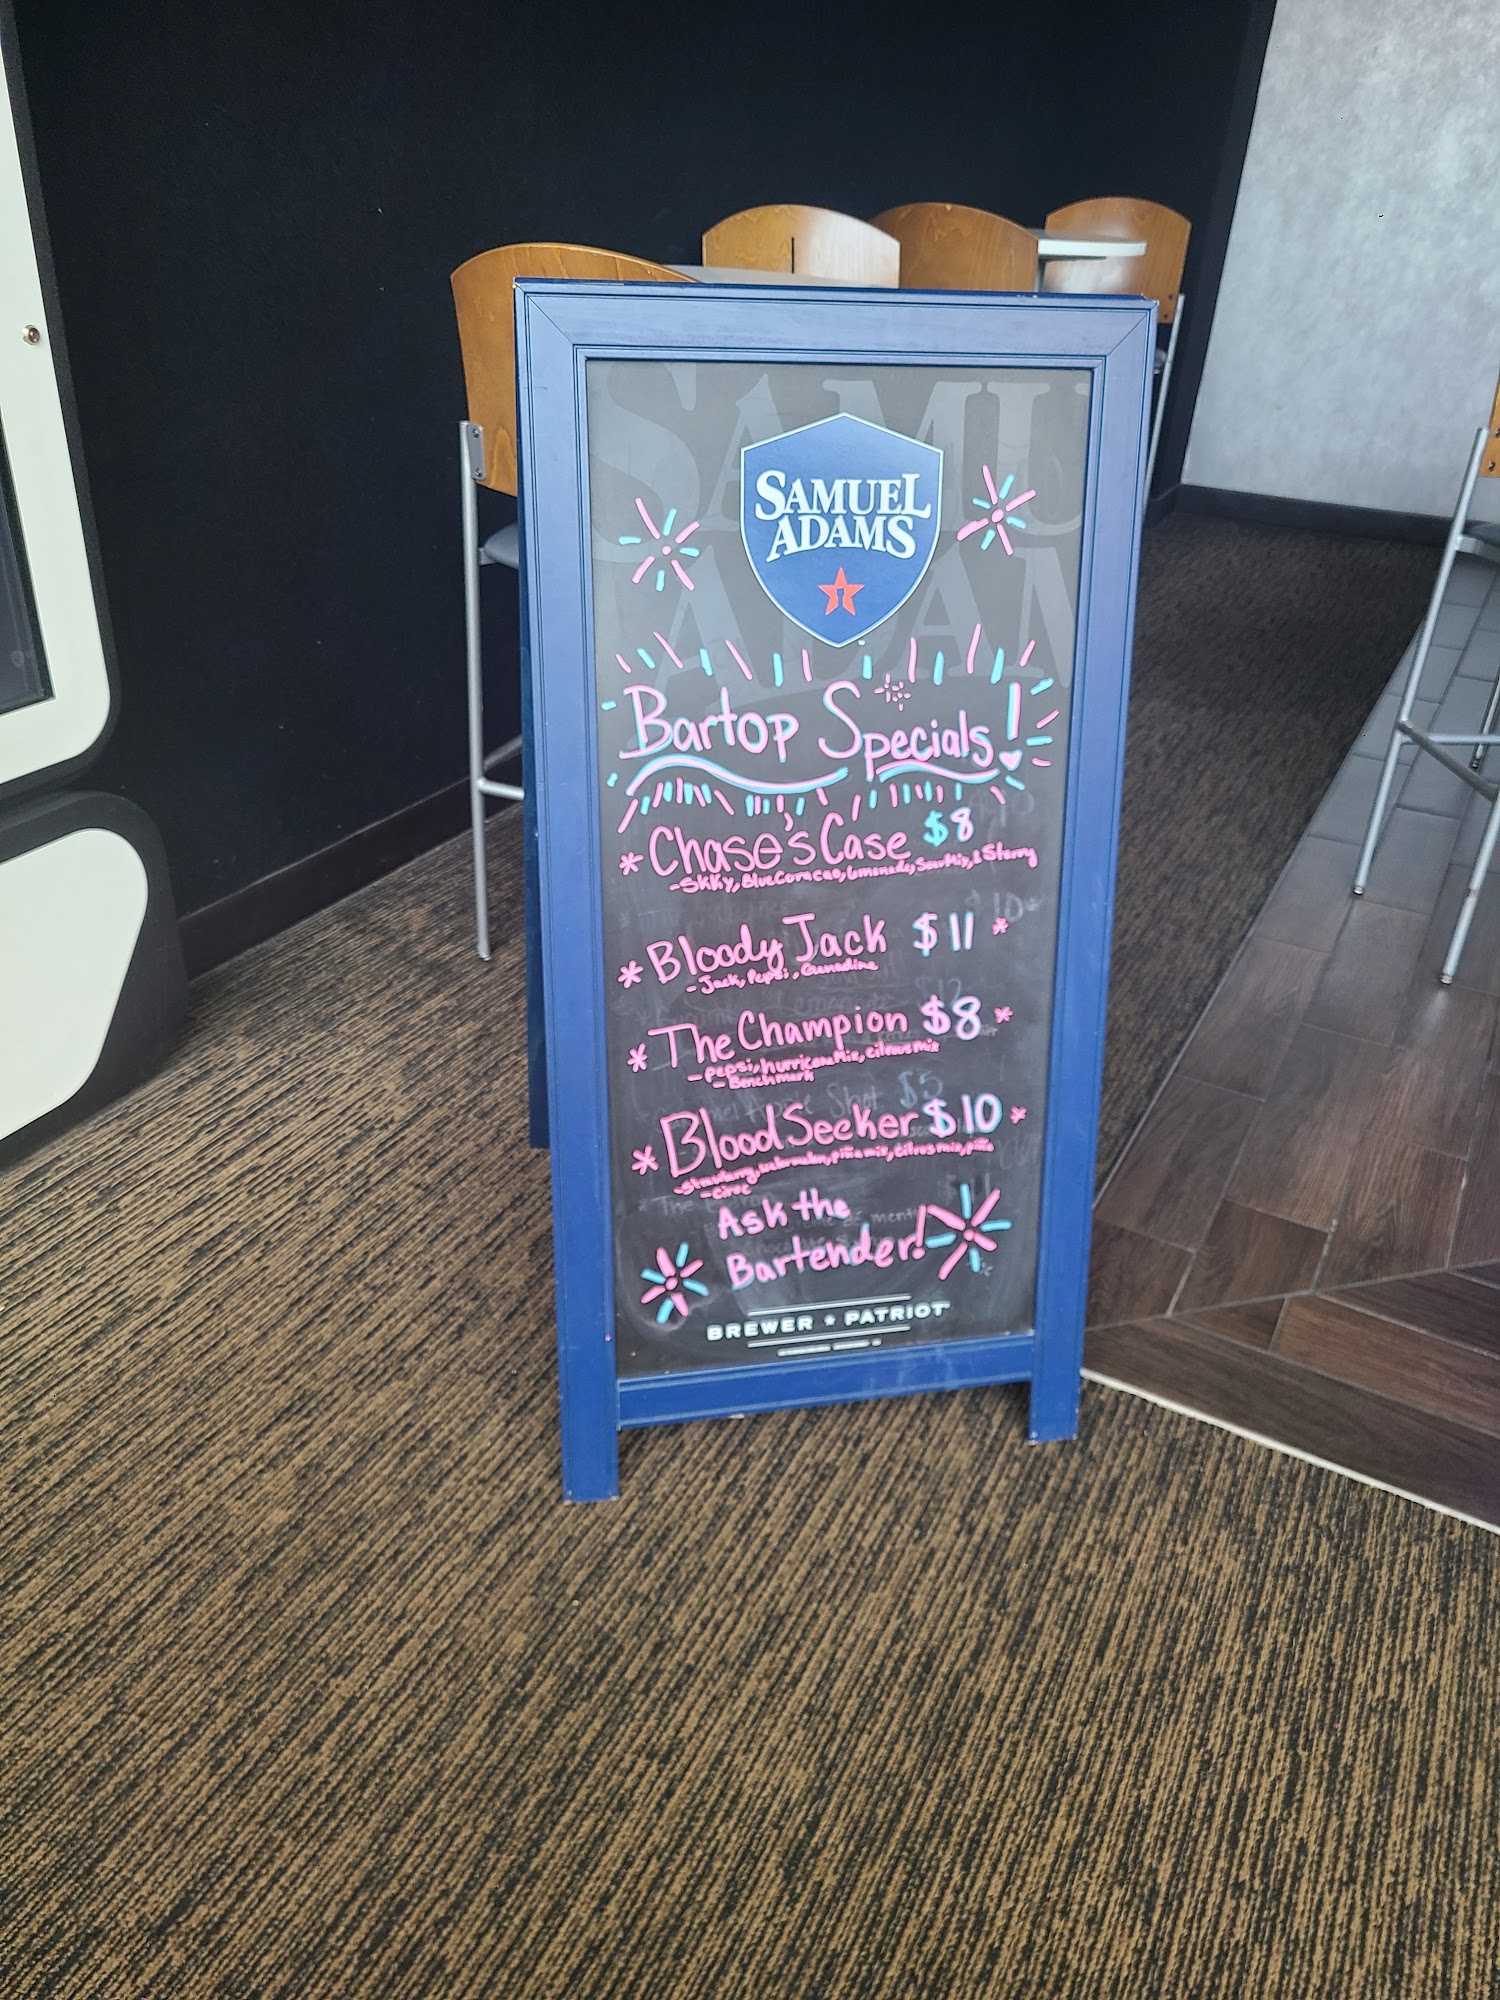 SAMUEL
ADAMS
Bartop Specials!
* Chase's Case $8
- Skky, Blue Curacao, Lemonade, Sour Mix, & Starry
* Bloody Jack $11 *
- Jack, Pepsi, Grenadine
* The Champion $8 *
- Pepsi, hurricane Mix, citrus mix
- Benchmark
* Blood Seeker $10 *
- Strawberry, watermelon, piña mix, citrus mix, piña
- ciroc
Ask the
Bartender!
BREWER ★ PATRIOT